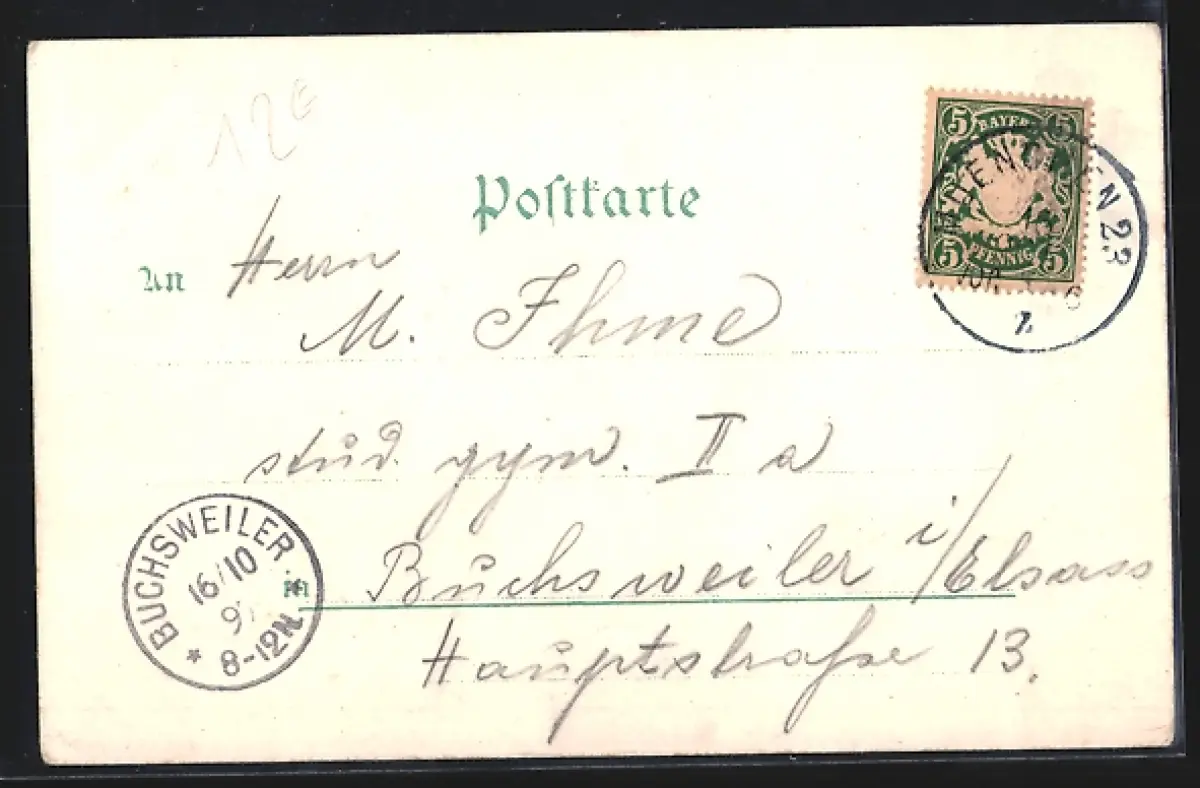 12€
Postkarte
5 BAYERN 5
5 PFENNIG 5
MÜENCHEN 23
An Herrn
M. Ihme
stud. gym. II a
in Buchsweiler i/Elsass
Hauptstraße 13.
BUCHSWEILER
16/10
8-12N.